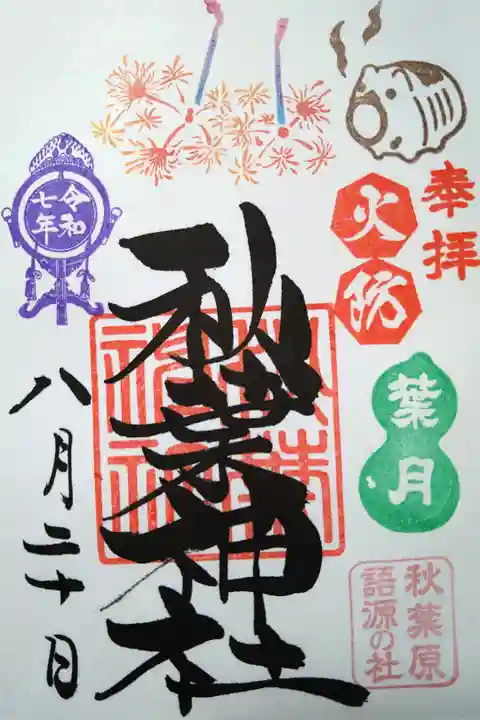 奉拝
火防
葉月
秋葉原
語源の社
秋葉神社
令和
七年
八月二十日